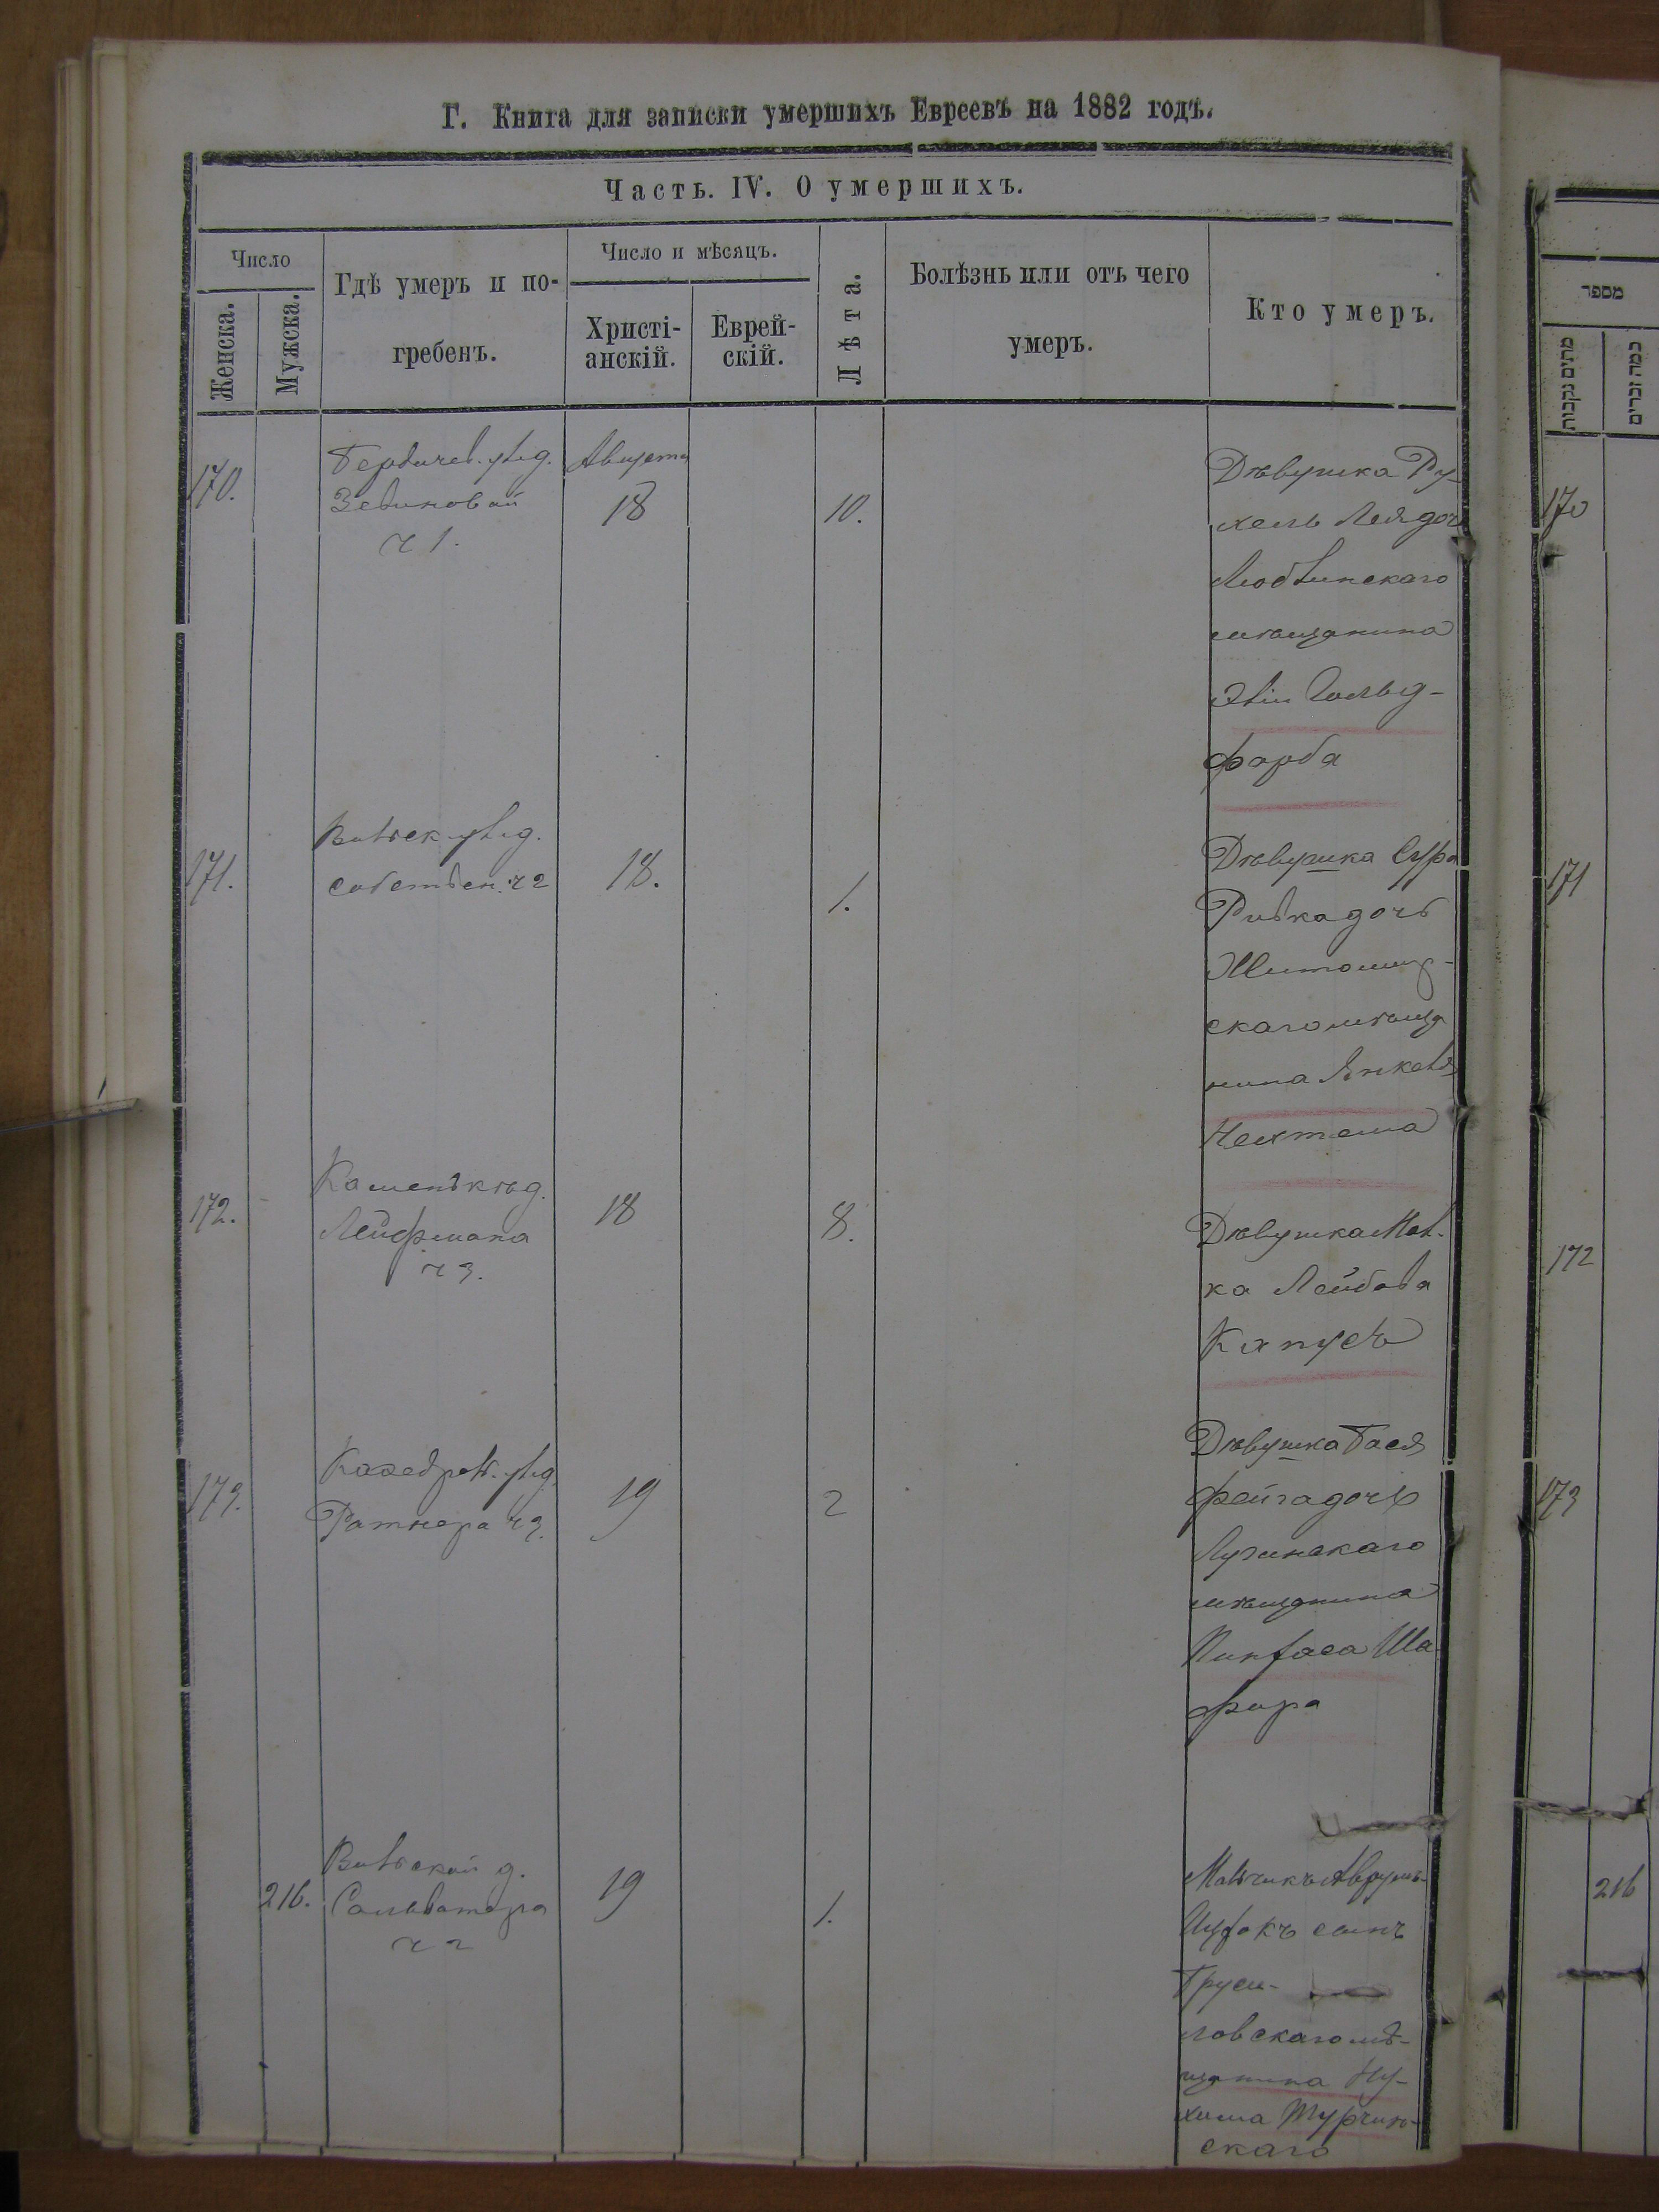 Г. Книга для записки умершихъ Евреевъ на 1882 годъ.
Часть. IV. О умершихъ.
Число
Женска.
Мужска.
Гдѣ умеръ и по-
гребенъ.
Число и мѣсяцъ.
Христі-
анскій.
Еврей-
скій.
Лѣта.
Болѣзнь или отъ чего
умеръ.
Кто умеръ.
170.
Бердичев. улиц.
ч 1.
Августа
18
10.
Дѣвушка Ру-
хель Лея дочь
мѣщанина
Гольд-
фарба
171.
собствен. ч 2
18.
1.
Дѣвушка Сура
Ривка дочь
Житомир-
скаго мѣща
нина Янкеля
Нехтема
172.
Лейфмана
ч 3.
18
8.
Дѣвушка Мал-
ка Лейбова
Капусъ
173.
Кафедрал. улиц.
Ратнера ч 3.
19
2
Дѣвушка Бася
Фейга дочь
Лугинскаго
мѣщанина
Пинхаса Ша
фира
216.
д.
Сальватора
ч 2
19
1.
Мальчикъ Аврумъ-
Ицхокъ сынъ
Бруси-
ловскаго мѣ-
щанина Ну-
хима Турчин-
скаго
מספר
מתים נקבות
כמה זכרים
170
171
172
173
216